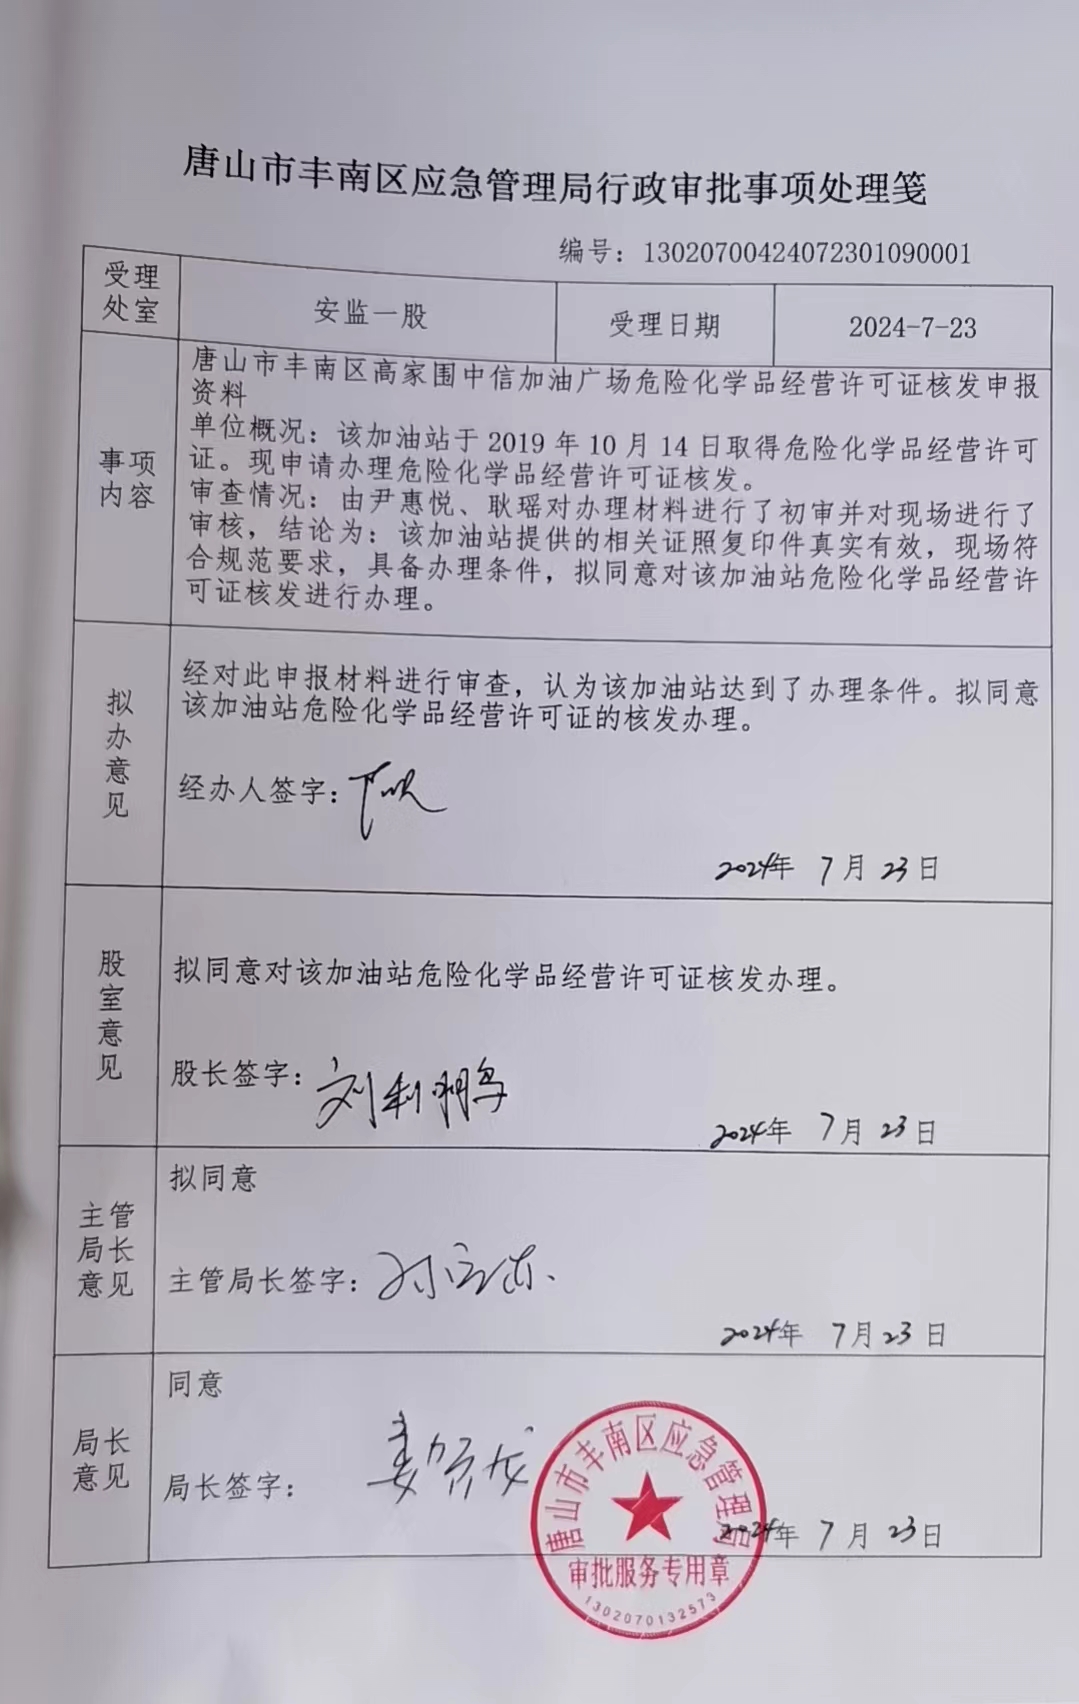 唐山市丰南区应急管理局行政审批事项处理笺
编号：13020700424072301090001
受理
处室
安监一股
受理日期
2024-7-23
事项
内容
唐山市丰南区高家围中信加油广场危险化学品经营许可证核发申报
资料
单位概况：该加油站于 2019 年 10 月 14 日取得危险化学品经营许可
证。现申请办理危险化学品经营许可证核发。
审查情况：由尹惠悦、耿瑶对办理材料进行了初审并对现场进行了
审核，结论为：该加油站提供的相关证照复印件真实有效，现场符
合规范要求，具备办理条件，拟同意对该加油站危险化学品经营许
可证核发进行办理。
拟
办
意
见
经对此申报材料进行审查，认为该加油站达到了办理条件。拟同意
该加油站危险化学品经营许可证的核发办理。
经办人签字：
2024年 7月 23日
股
室
意
见
拟同意对该加油站危险化学品经营许可证核发办理。
股长签字：刘利鹏
2024年 7月 23日
主管
局长
意见
拟同意
主管局长签字：
2024年 7月 23日
局长
意见
同意
局长签字：
2024年 7月 23日
唐山市丰南区应急管理局
审批服务专用章
1302070132573